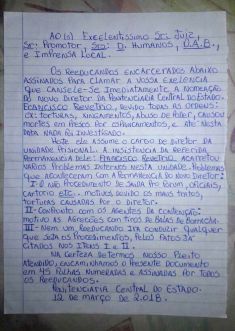 AO(S) EXELENTISSIMO SR: JUIZ,
SR: PROMOTOR, SRS: D. HUMANOS, O.A.B.,
E IMPRENSA LOCAL.
OS REEDUCANDOS ENCARCERADOS ABAIXO
ASSINADOS PARA CLAMAR A VOSSA EXELENCIA
QUE CANSELE-SE IMEDIATAMENTE A NOMEAÇÃO
DO NOVO DIRETOR DA PENITENCIARIA CENTRAL DO ESTADO.
FRANCISCO REVETRIO, DEVIDO TODAS AS ORDENS:
EX: TORTURAS, XINGAMENTOS, ABUSO DE PODER, CAUSOU
MORTES EM PRESOS POR ESPANCAMENTOS, E ATÉ NESTA
DATA NADA FOI INVESTIGADO.
HOJE ELE ASSUME O CARGO DE DIRETOR DA
UNIDADE PRISIONAL. A INSISTENCIA DA REFERIDA
PERMANENCIA DELE: FRANCISCO REVETRIO, ACARRETOU
VARIOS PROBLEMAS INTERNOS NESTA UNIDADE. PROBLEMAS
QUE ACONTECERAM COM A PERMANENCIA DO NOVO DIRETOR:
I - O NÃO PROCEDIMENTO DE SAIDA PRO FORUM, OFICIAIS,
CARTORIO ETC.. MOTIVO DEVIDO OS MAUS TRATOS,
TORTURAS CAUSADAS POR O DIRETOR.
II - CONFRONTO COM OS AGENTES DA CONTENÇÃO:
MOTIVO AS AGRESSÕES COM TIROS DE BALAS DE BORRACHA.
III - NEM UM REEDUCANDO IRA CONDUZIR QUALQUER
QUE SEJA OS PROCEDIMENTOS, PELOS FATOS JÁ
CITADOS NOS ITENS I E II.
NA CERTEZA DE TERMOS NOSSO PLEITO
ATENDIDO, ENCAMINHAMOS O PRESENTE DOCUMENTO
EM 45 FOLHAS NUMERADAS E ASSINADAS POR TODOS
OS REEDUCANDOS.
PENITENCIARIA CENTRAL DO ESTADO.
12 DE MARÇO DE 2.018.